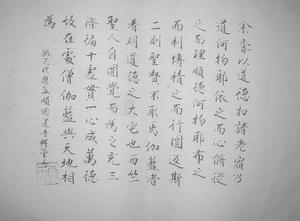 余嘗以道德扣諸老宿乃
道何物耶依之而心脩從
之而理順德何物耶布之
而利博積之而行圓返斯
二則聖賢不取焉伽藍者
眘則道德之大宅也西竺
聖人自圓覺而為之充三
際福十虛貫一心成萬德
故在處僧伽藍與天地相